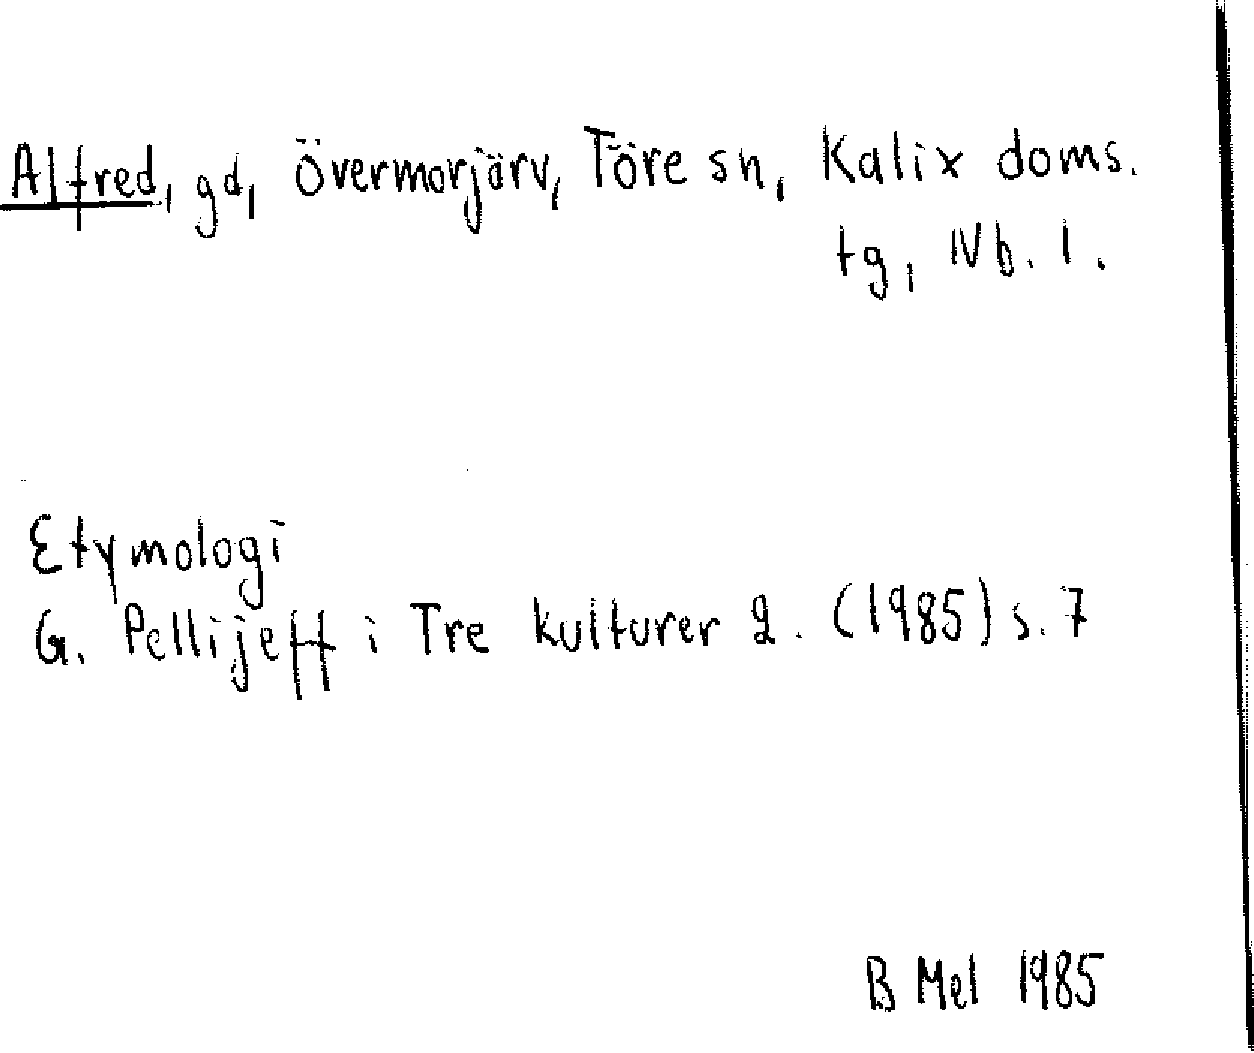 Alfred, gd, Övermorjärv, Töre sn, Kalix doms.
tg, Nb. l.
Etymologi
G. Pellijeff i Tre kulturer 2. (1985) s. 7
B Mel 1985